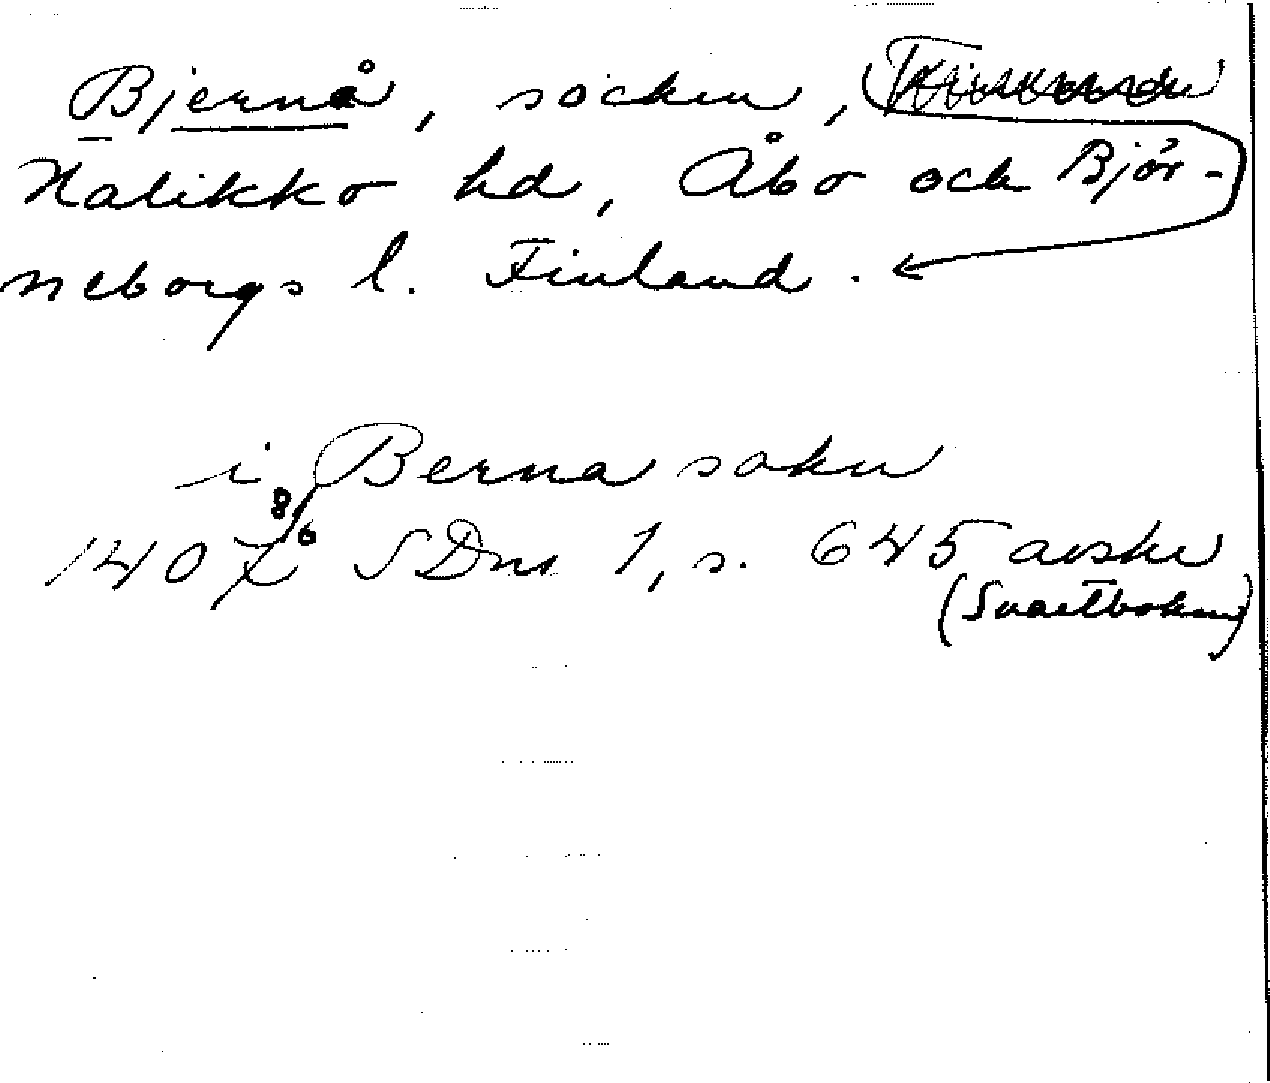 Bjernå, socken,
Halikko hd, Åbo och Björ-
neborgs l. Finland.
i Berna sokn
1407 8/6 SDns 1, s. 645 avskr
(Svartboken)